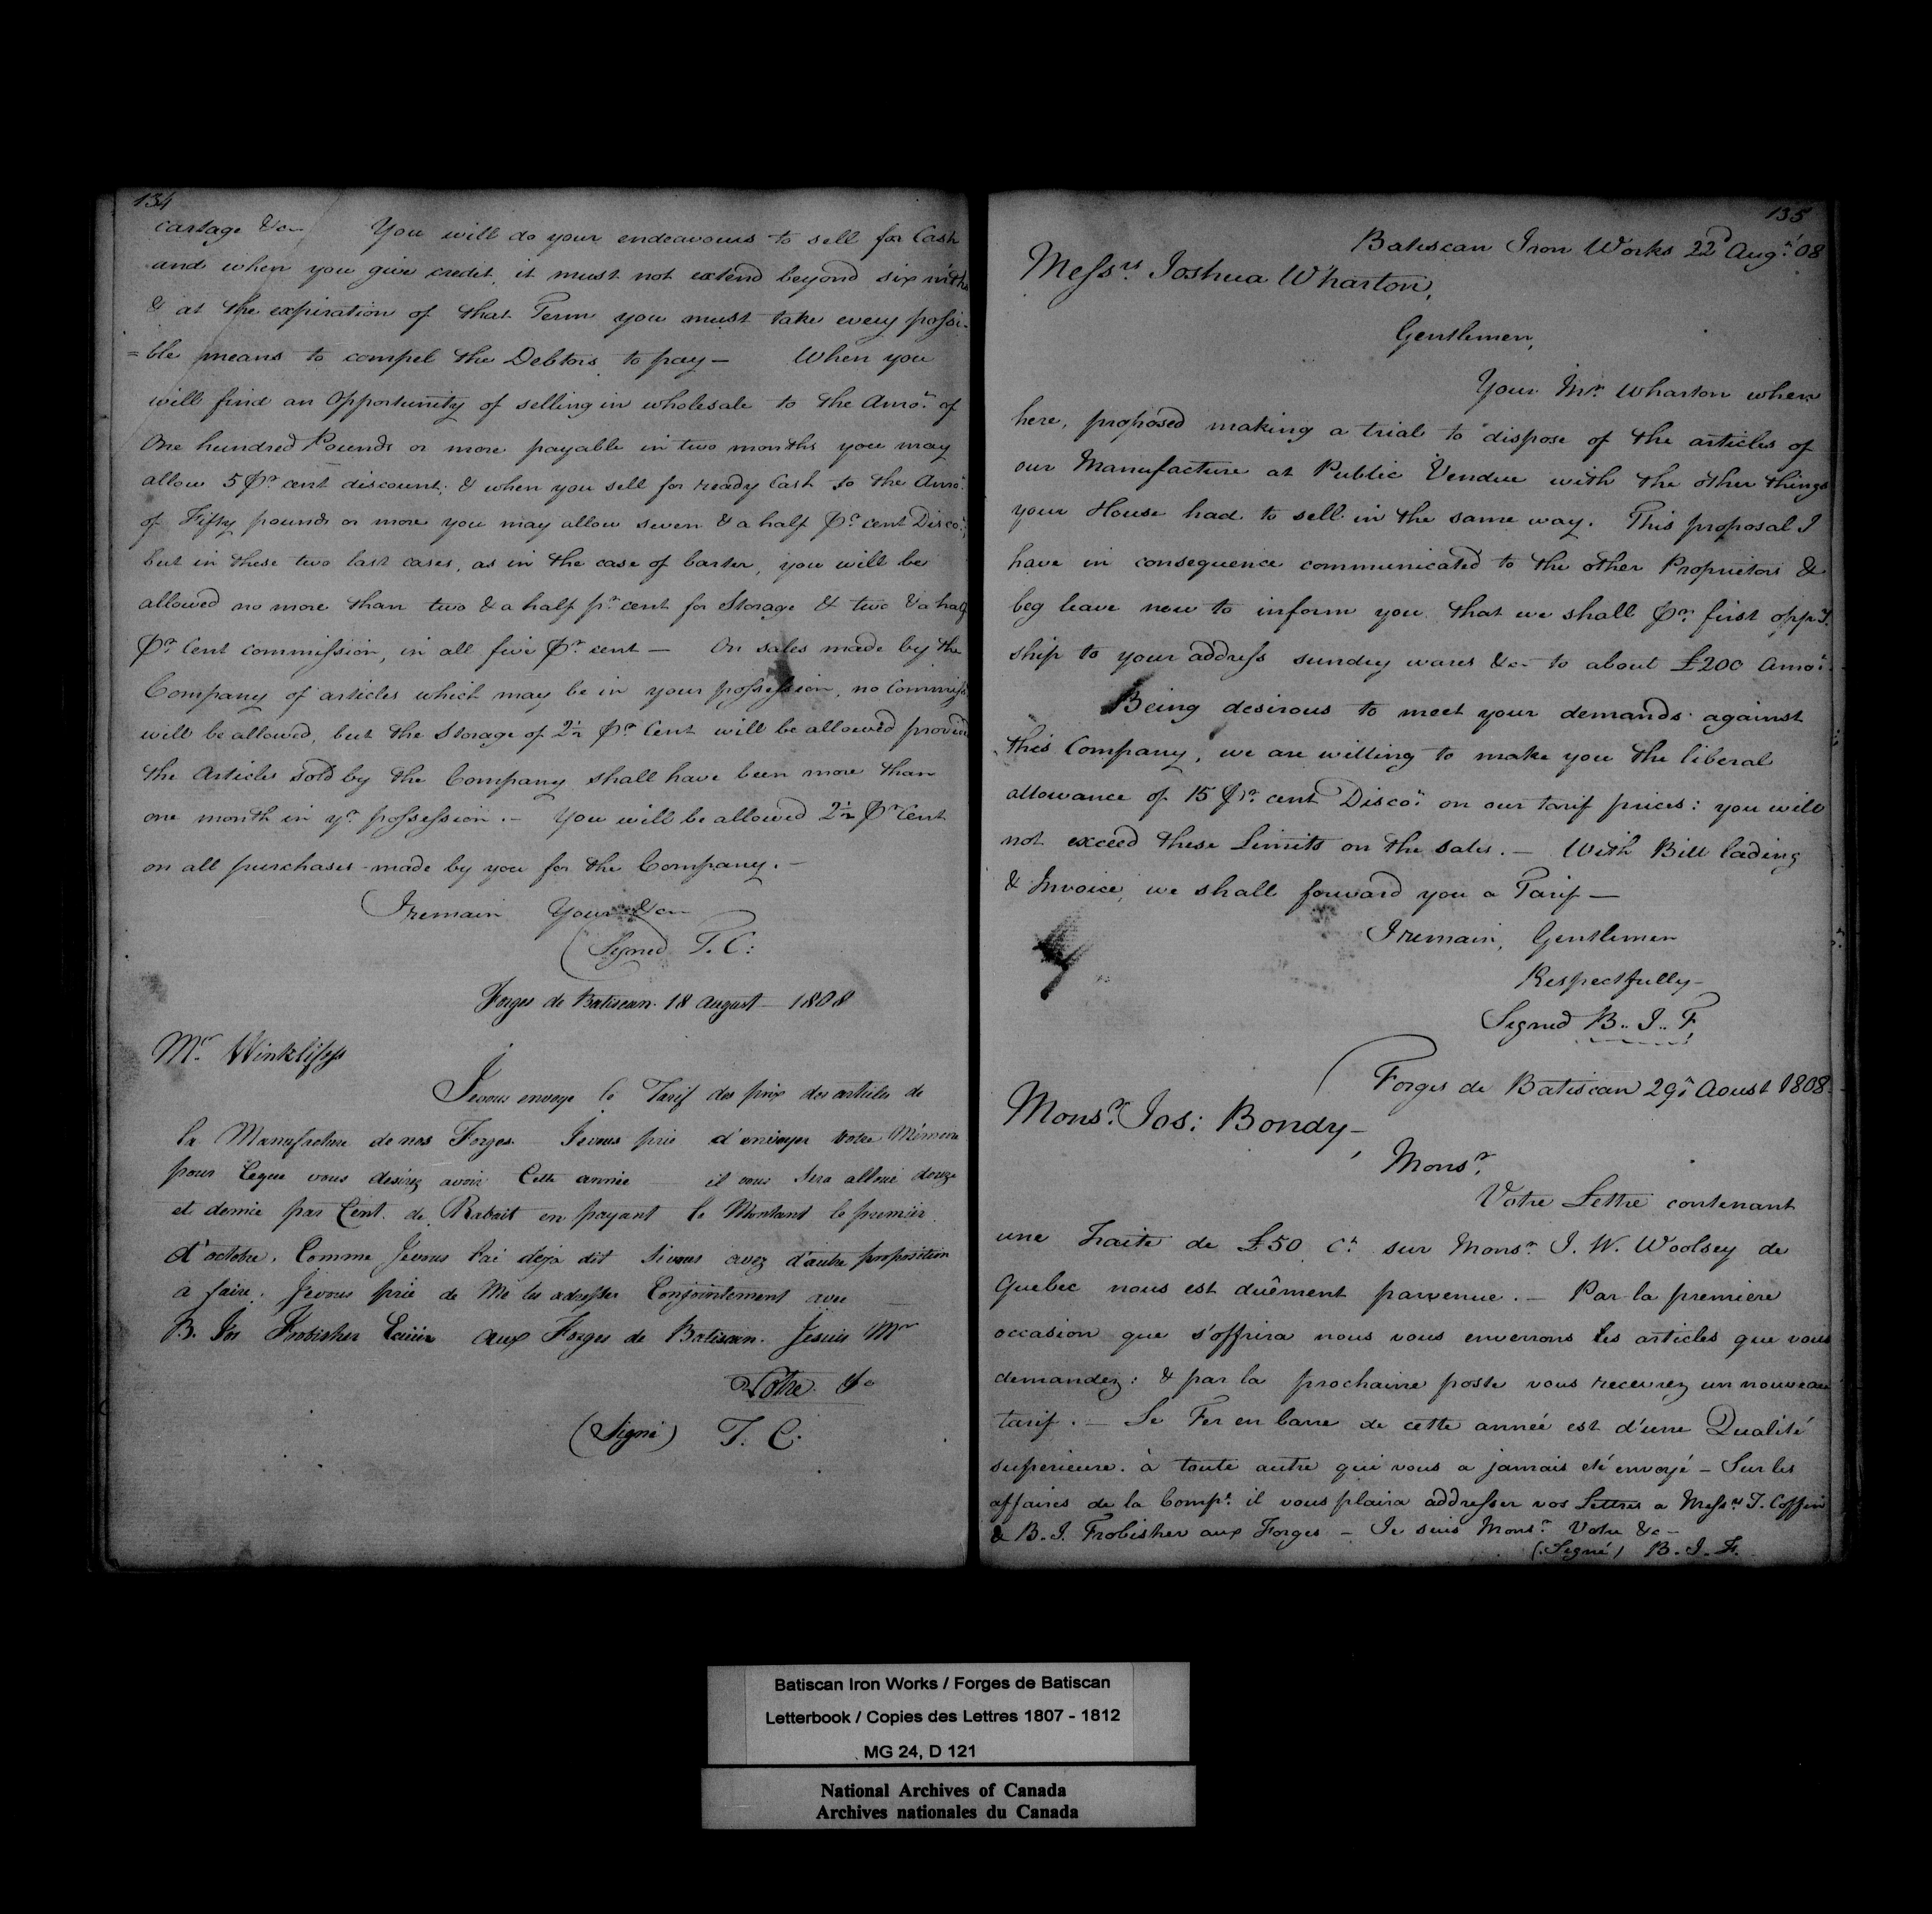 134
cartage &c— You will do your endeavours to sell for Cash
and when you give credit, it must not extend beyond six mths
& at the expiration of that Term you must take every possi-
=ble means to compel the Debtors to pay — When you
will find an Opportunity of selling in wholesale to the Amot. of
One hundred Pounds or more payable in two months you may
allow 5 Pr cent discount; & when you sell for ready Cash to the Amot.
of Fifty pounds or more you may allow seven & a half Pr cent Disco:;
but in these two last cases, as in the case of barter, you will be
allowed no more than two & a half pr cent for Storage & two & a half
Pr Cent commission, in all five Pr. cent — On sales made by the
Company of articles which may be in your possession, no Commiss
will be allowed, but the Storage of 2½ Pr Cent will be allowed provid
the Articles sold by the Company shall have been more than
one month in yr. possession. — You will be allowed 2½ Pr Cent
on all purchases made by you for the Company. —
I remain Your &c—
(Signed T. C:
Forges de Batiscan. 18 August — 1808
Mr.
Je vous envoye le Tarif des prix des articles de
la Manufacture de nos Forges — Je vous prie d'envoyer votre Mémoire
pour ceque vous desirez avoir Cette année — il vous sera alloué douze
et demie par Cent. de Rabait en payant le Montant le premier
d'octobre. Comme Je vous l'ai deja dit si vous avez d'autre proposition
a faire. Je vous prie de Me les adresser Conjointement avec —
B. Jos Frobisher aux Forges de Batiscan. Je suis Mr
Votre &c
(Signé) T. C.
135
Batiscan Iron Works 22d Augt. '08
Messrs. Joshua Wharton,
Gentlemen,
Your Mr. Wharton when
here, proposed making a trial to dispose of the articles of
our Manufacture at Public Vendue with the other things
your House had to sell in the same way. This proposal I
have in consequence communicated to the other Proprietors &
beg leave now to inform you that we shall Pr. first oppy.
ship to your address sundry wares &c— to about £200 Amot.
Being desirous to meet your demands against
this Company, we are willing to make you the liberal
allowance of 15 Pr. cent Disco: on our tarif prices: you will
not exceed these Limits on the sales. — With Bill lading
& Invoice, we shall forward you a Tarif —
I remain, Gentlemen
Respectfully —
Signed B.. J.. F.
Forges de Batiscan 29. Aoust 1808.
Monsr. Jos: Bondy,
Monsr.
Votre Lettre contenant
une Traite de £50 Ct. sur Monsr. J. W. Woolsey de
Quebec nous est duêment parvenue. — Par la premiere
occasion que s'offrira nous vous enverrons les articles que vous
demandez: & par la prochaine poste vous recevrez un nouveau
tarif. — Le Fer en barre de cette année est d'une Qualité
superieure. à toute autre qui vous a jamais eté envoyé — Sur les
affaires de la Compe. il vous plaira addresser vos Lettres a Messrs T. Coffin
& B. J. Frobisher aux Forges — Je suis Monsr. Votre &c—
(Signé) B. J. F.
Batiscan Iron Works / Forges de Batiscan
Letterbook / Copies des Lettres 1807 - 1812
MG 24, D 121
National Archives of Canada
Archives nationales du Canada